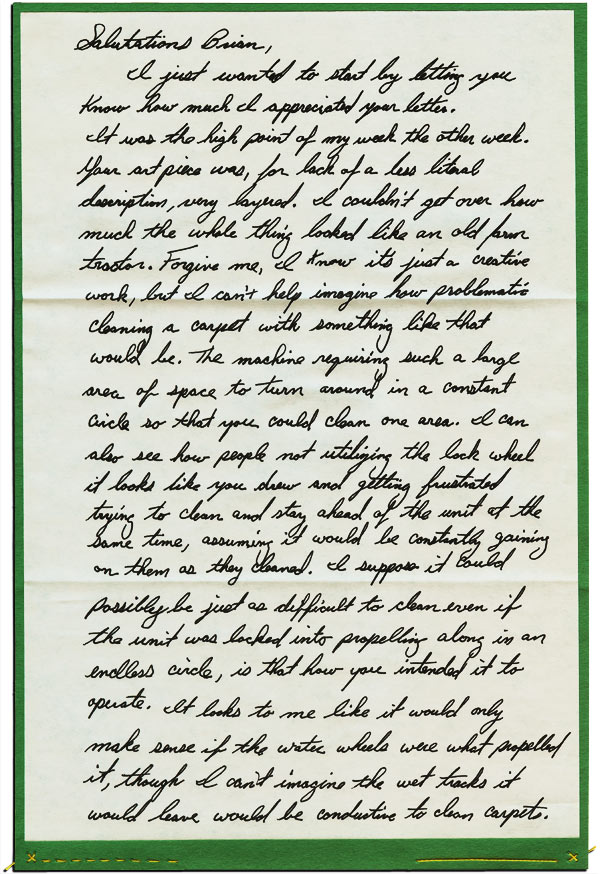 Salutations Brian,
I just wanted to start by letting you
know how much I appreciated your letter.
It was the high point of my week the other week.
Your art piece was, for lack of a less literal
description, very layered. I couldn't get over how
much the whole thing looked like an old farm
tractor. Forgive me, I know it's just a creative
work, but I can't help imagine how problematic
cleaning a carpet with something like that
would be. The machine requiring such a large
area of space to turn around in a constant
circle so that you could clean one area. I can
also see how people not utilizing the lock wheel
it looks like you drew and getting frustrated
trying to clean and stay ahead of the unit at the
same time, assuming it would be constantly gaining
on them as they cleaned. I suppose it could
possibly be just as difficult to clean even if
the unit was locked into propelling along in an
endless circle, is that how you intended it to
operate. It looks to me like it would only
make sense if the water wheels were what propelled
it, though I can't imagine the wet tracks it
would leave would be conductive to clean carpets.